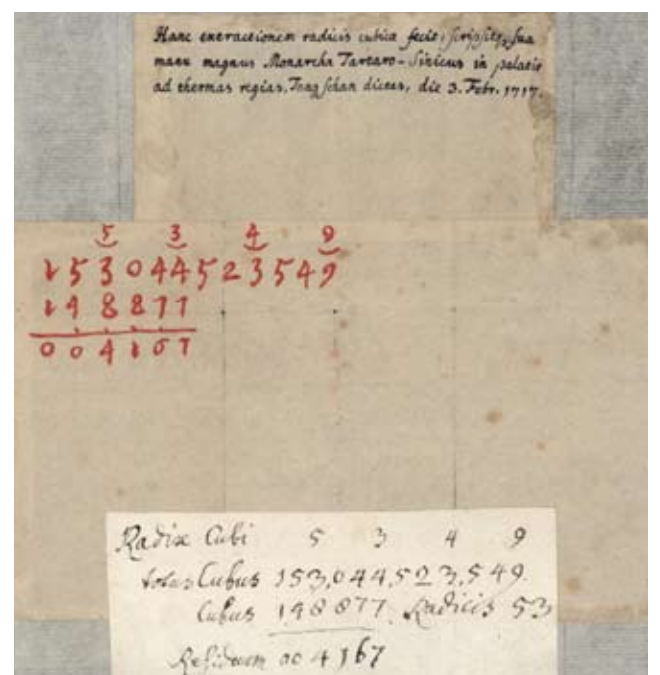 Hanc extractionem radicis cubicæ fecit, scripsitq, sua
manu magnus Monarcha Tartaro-Sinicus in palatio
ad thermas regias, Tang schan dictas, die 3. Febr. 1717.
5 3 4 9
153044523549
148877
004167
Radix Cubi 5 3 4 9
totus Cubus 153,044,523,549.
Cubus 148877. Radicis 53
Residuum 004167